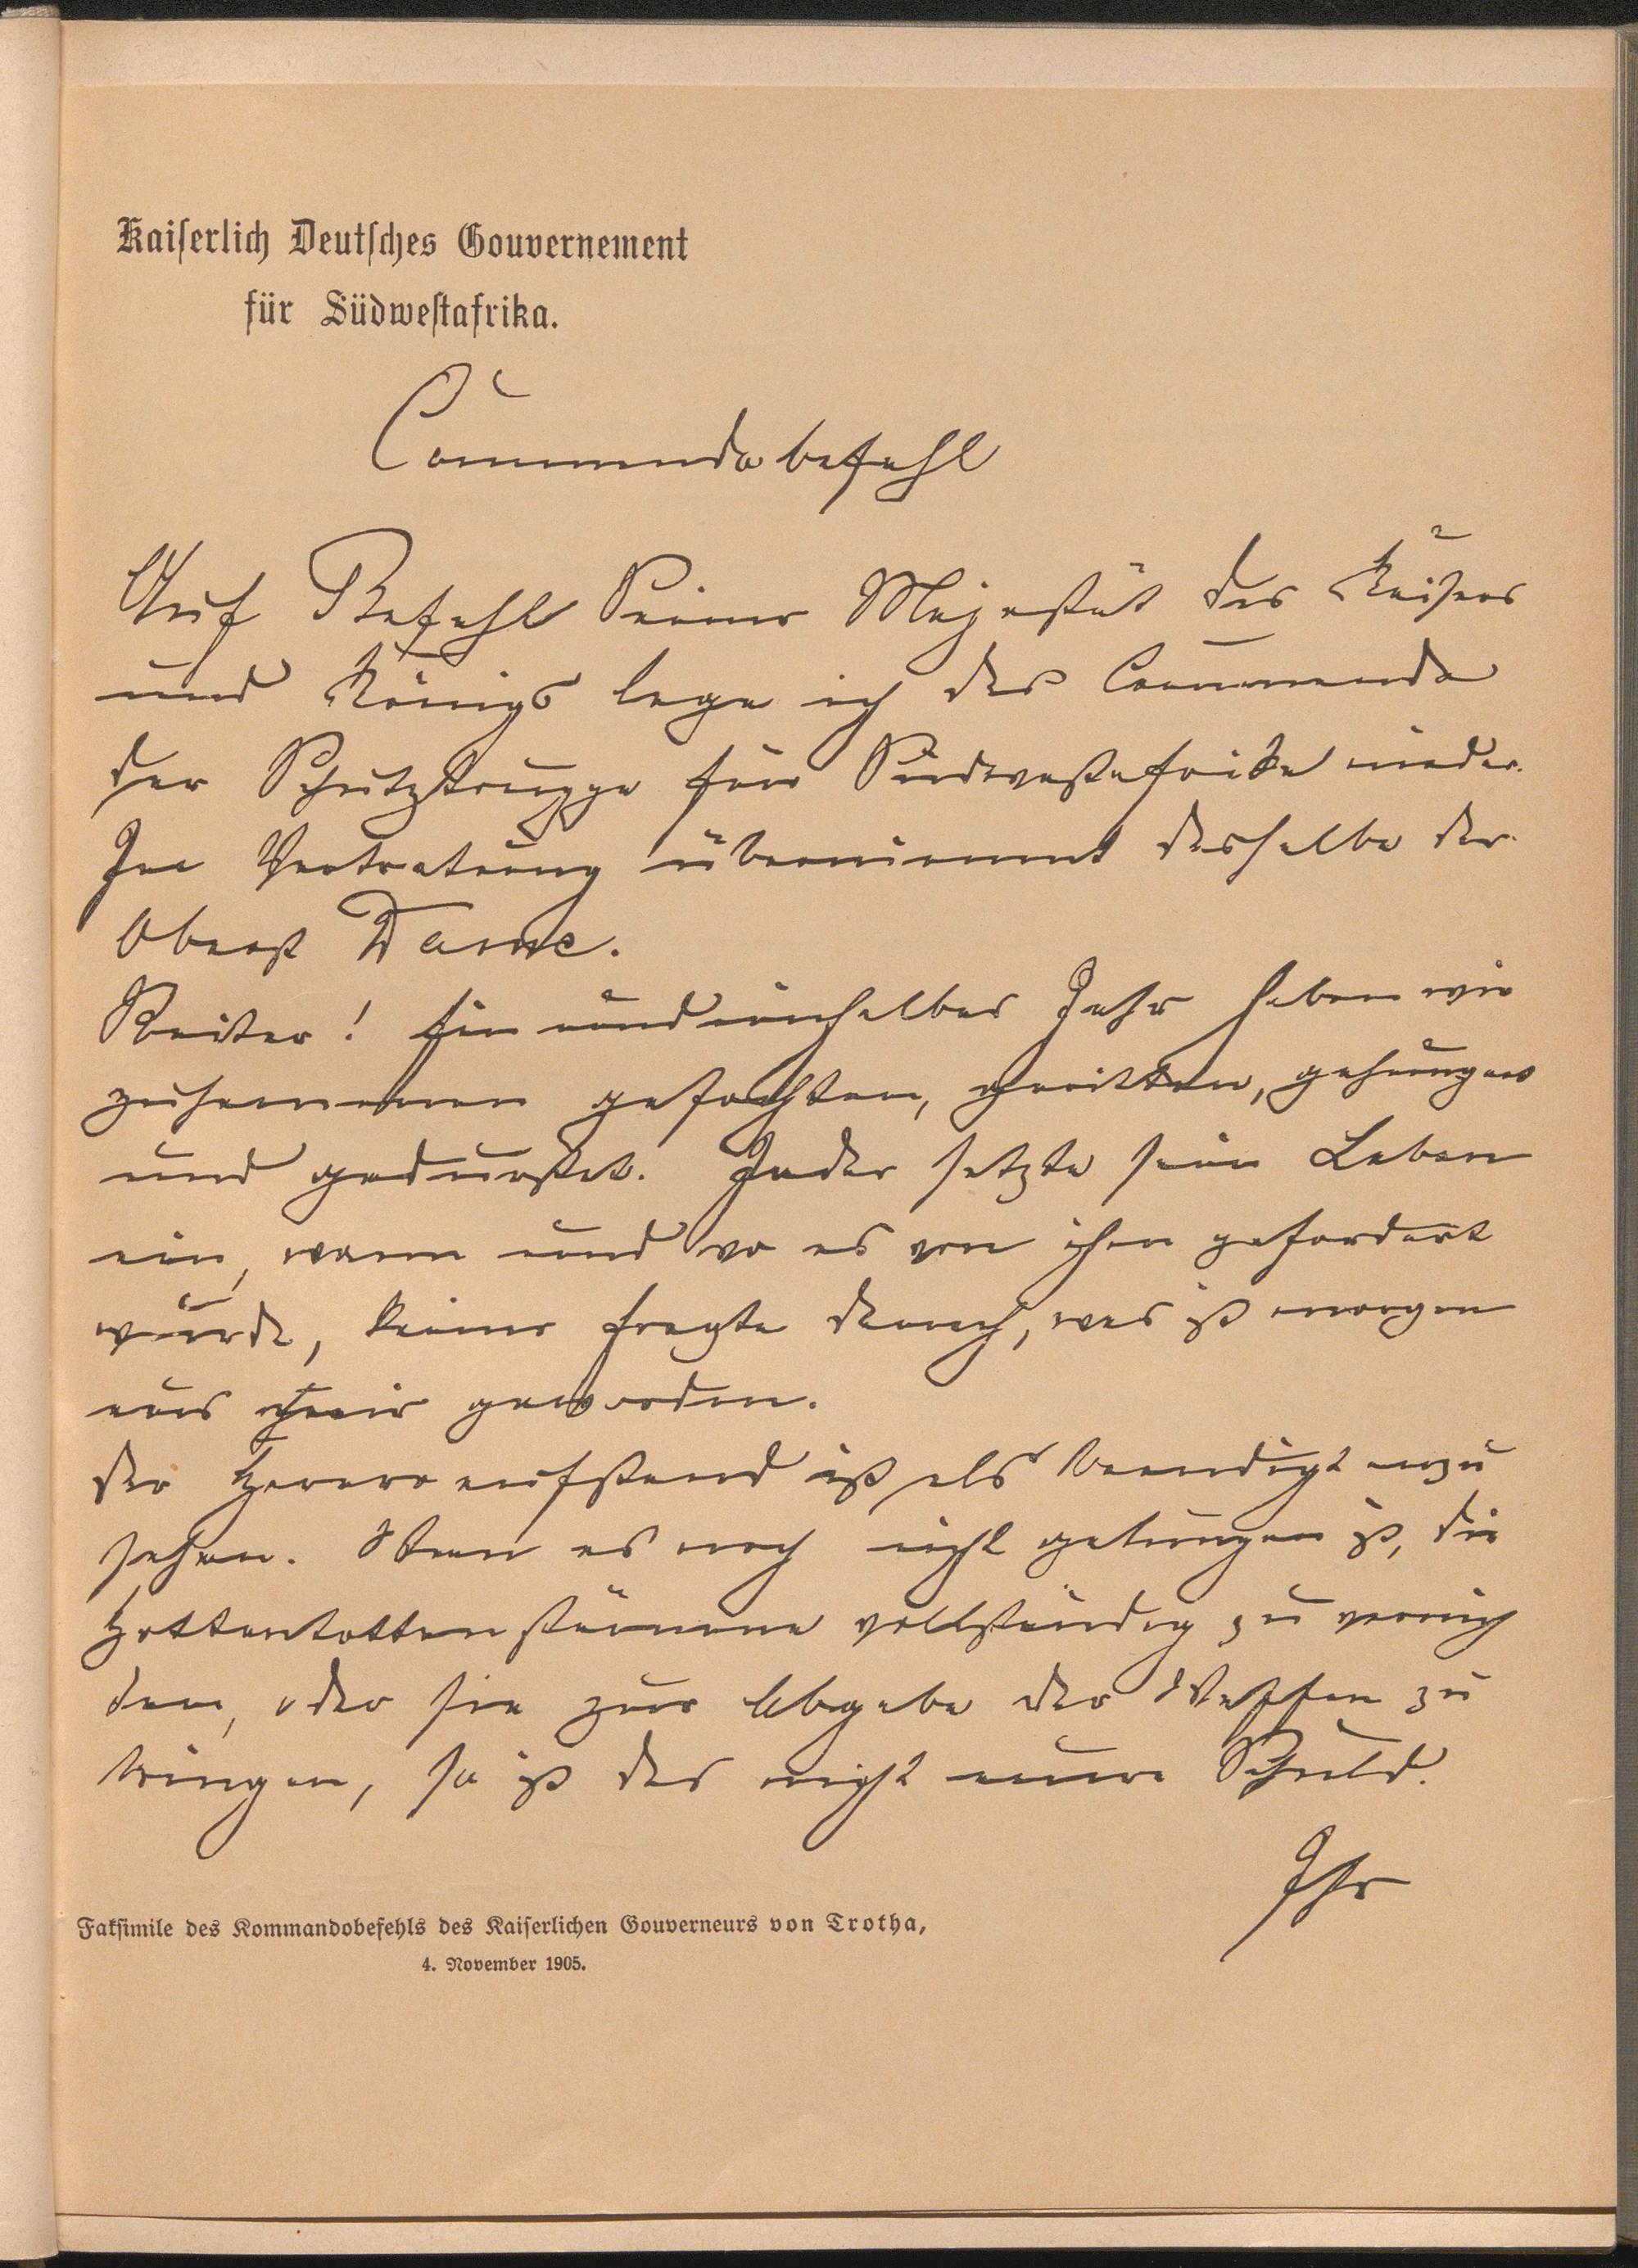 Kaiserlich Deutsches Gouvernement
für Südwestafrika.
Commandobefehl
Auf Befehl Seiner Majestät des Kaisers
und Königs lege ich das Commando
der Schutztruppe für Südwestafrika nieder.
In Vertretung übernimmt dasselbe der
Oberst Dame.
Reiter! Ein und einhalbes Jahr haben wir
zusammen gefochten, geritten, gehungert
und gedurstet. Jeder setzte sein Leben
ein, wann und wo es von ihm gefordert
wurde, keiner fragte danach, was ist morgen
aus mir geworden.
Der Hereroaufstand ist als beendigt anzu
sehen. Wenn es noch nicht gelungen ist, die
Hottentottenstämme vollständig zu vernich
ten, oder sie zur Abgabe der Waffen zu
bringen, so ist das nicht eure Schuld.
Ihr
Faksimile des Kommandobefehls des Kaiserlichen Gouverneurs von Trotha,
4. November 1905.